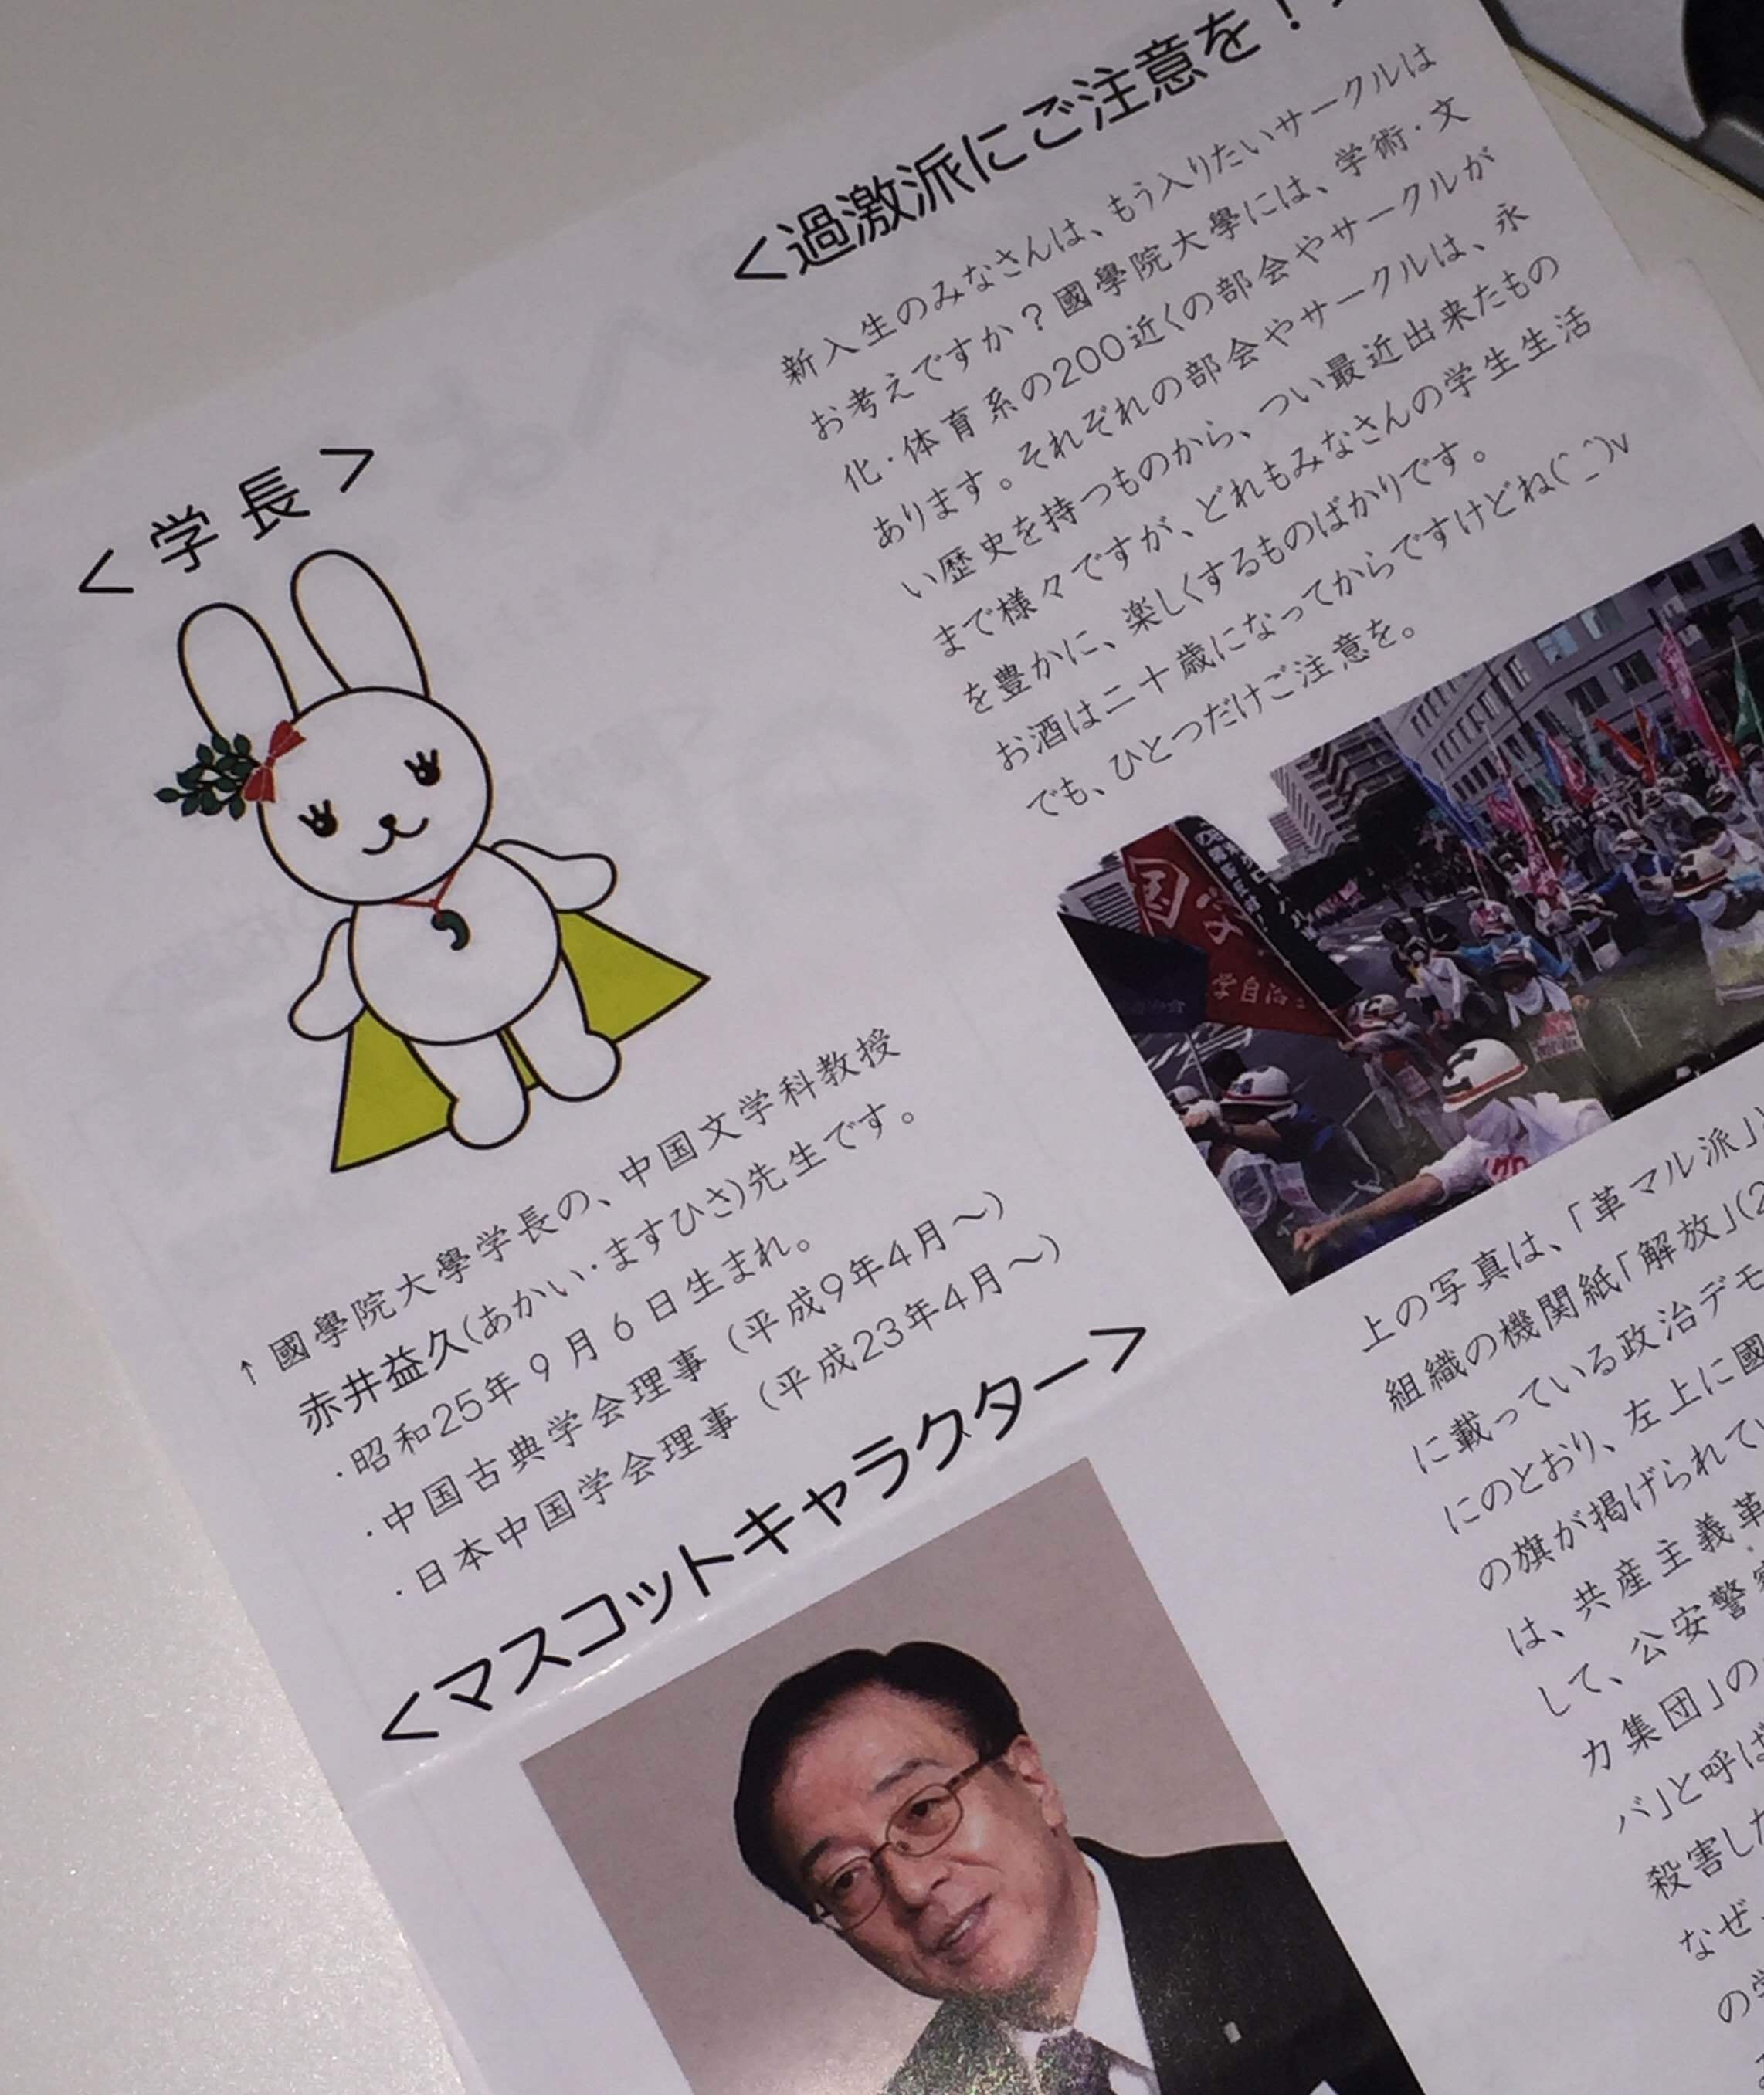 <学長>
↑國學院大學学長の、中国文学科教授
赤井益久(あかい・ますひさ)先生です。
・昭和25年9月6日生まれ。
・中国古典学会理事(平成9年4月~)
・日本中国学会理事(平成23年4月~)
<マスコットキャラクター>
<過激派にご注意を!>
新入生のみなさんは、もう入りたいサークルは
お考えですか?國學院大學には、学術・文
化・体育系の200近くの部会やサークルが
あります。それぞれの部会やサークルは、永
い歴史を持つものから、つい最近出来たもの
まで様々ですが、どれもみなさんの学生生活
を豊かに、楽しくするものばかりです。
お酒は二十歳になってからですけどね(^_^)v
でも、ひとつだけご注意を。
国学
学自治
上の写真は、「革マル派」
組織の機関紙「解放」(2
に載っている政治デモ
にのとおり、左上に國
の旗が掲げられて
は、共産主義革
して、公安警察
力集団」の
バ」と呼ば
殺害した
なぜ
の学